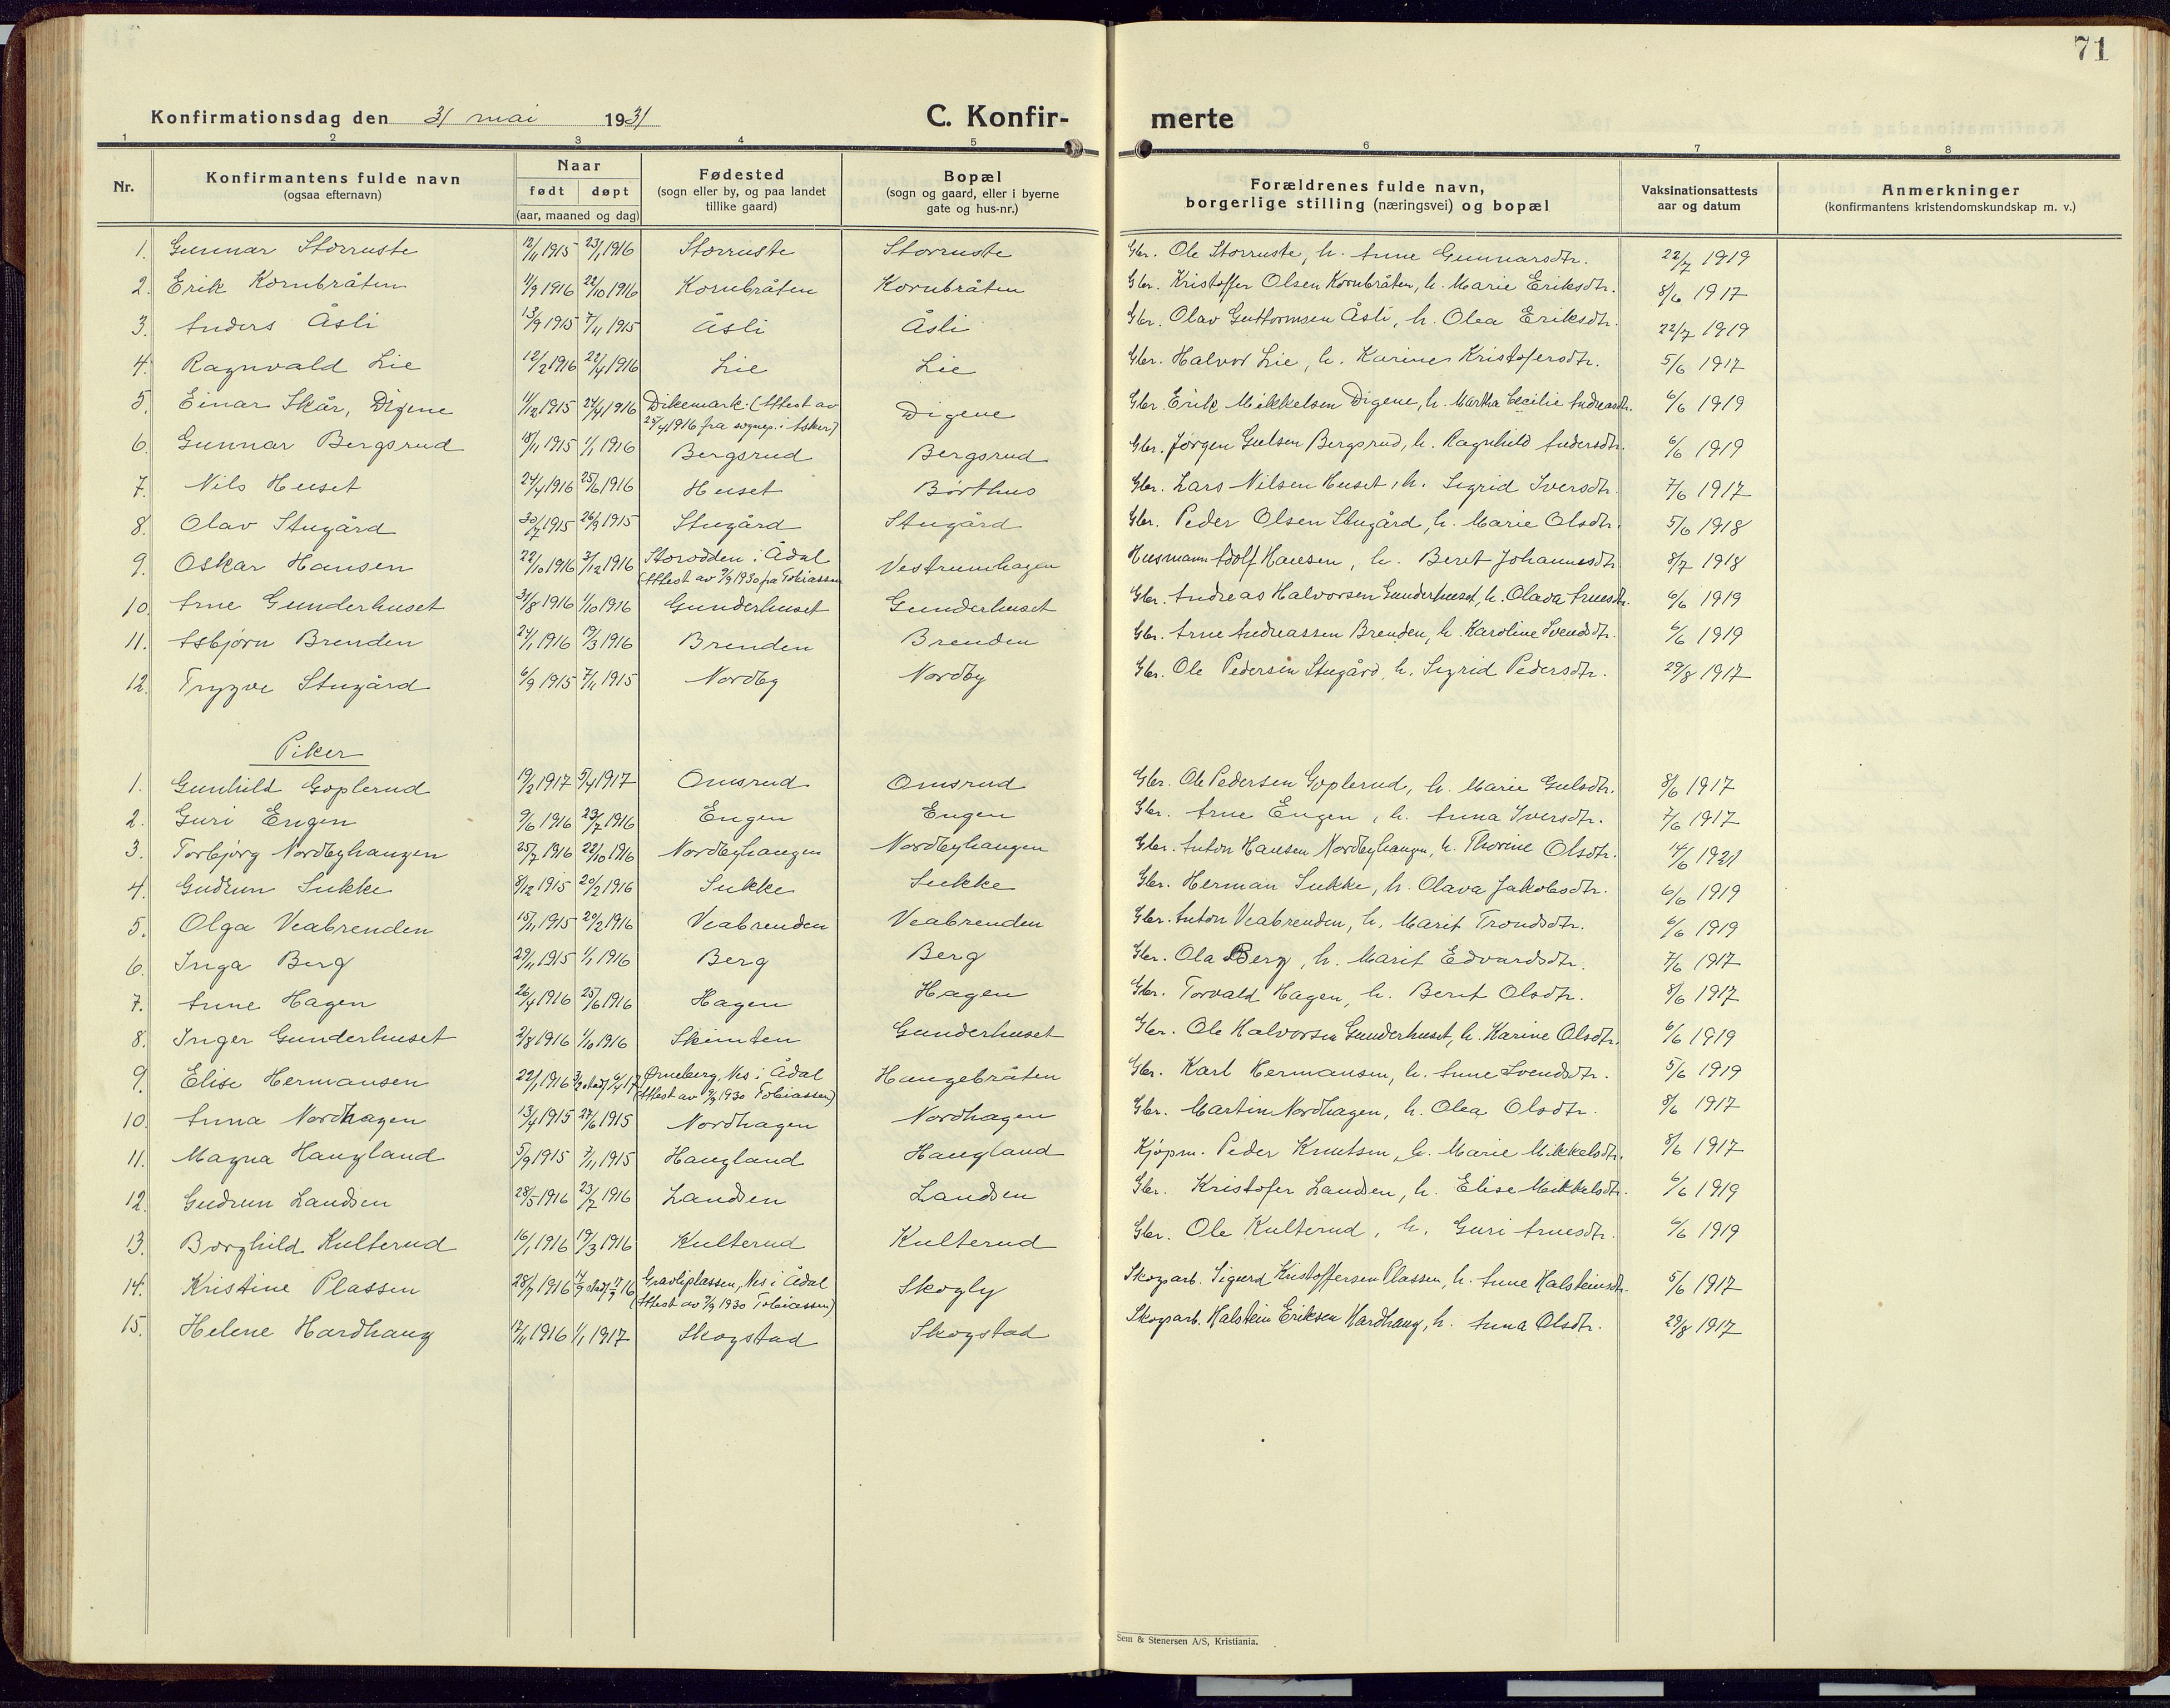 71
Konfirmationsdag den 31 mai 1931 C. Konfir- merte
1 2 3 4 5 6 7 8
Nr. Konfirmantens fulde navn (ogsaa efternavn) Naar født døpt (aar, maaned og dag) Fødested (sogn eller by, og paa landet tillike gaard) Bopæl (sogn og gaard, eller i byerne gate og hus-nr.) Forældrenes fulde navn, borgerlige stilling (næringsvei) og bopæl Vaksinationsattests aar og datum Anmerkninger (konfirmantens kristendomskundskap m. v.)
1. Gunnar Storruste 12/11 1915 23/1 1916 Storruste Storruste Gbr. Ole Storruste, h. Anne Gunnarsdtr. 22/7 1919
2. Erik Kornbråten 11/9 1916 22/10 1916 Kornbråten Kornbråten Gbr. Kristoffer Olsen Kornbråten, h. Marie Eriksdtr. 8/6 1917
3. Anders Åsli 13/9 1915 7/11 1915 Åsli Åsli Gbr. Olav Guttormsen Åsli, h. Olea Eriksdtr. 22/7 1919
4. Ragnvald Lie 12/2 1916 22/4 1916 Lie Lie Gbr. Halvor Lie, h. Karine Kristofersdtr. 5/6 1917
5. Einar Skår, Digene 11/12 1915 24/4 1916 Dikemark. (Attest av 25/4 1916 fra sognep. i Asker) Digene Gbr. Erik Mikkelsen Digene, h. Martha Cecilie Andreasdtr. 6/6 1919
6. Gunnar Bergsrud 18/11 1915 1/1 1916 Bergsrud Bergsrud Gbr. Jørgen Gulsen Bergsrud, h. Ragnhild Andersdtr. 6/6 1919
7. Nils Huset 24/4 1916 25/6 1916 Huset Børthus Gbr. Lars Nilsen Huset, h. Sigrid Iversdtr. 7/6 1917
8. Olav Stugård 30/7 1915 26/9 1915 Stugård Stugård Gbr. Peder Olsen Stugård, h. Marie Olsdtr. 5/6 1918
9. Oskar Hansen 22/10 1916 3/12 1916 Storodden i Ådal (Attest av 9/9 1930 fra Tobiassen Vestrumhagen Husmann Adolf Hansen, h. Beret Johannesdtr. 8/7 1918
10. Arne Gunderhuset 31/8 1916 1/10 1916 Gunderhuset Gunderhuset Gbr. Andreas Halvorsen Gunderhuset, h. Olava Arnesdtr. 6/6 1919
11. Asbjørn Brenden 24/1 1916 19/3 1916 Brenden Brenden Gbr. Arne Andreassen Brenden, h. Karoline Svendsdtr. 6/6 1919
12. Trygve Stugård 6/9 1915 7/11 1915 Nordby Nordby Gbr. Ole Pedersen Stugård, h. Sigrid Pedersdtr. 29/8 1917
Piker
1. Gunhild Goplerud 19/2 1917 5/4 1917 Omsrud Omsrud Gbr. Ole Pedersen Goplerud, h. Marie Gulsdtr. 8/6 1917
2. Guri Engen 9/6 1916 23/7 1916 Engen Engen Gbr. Arne Engen, h. Anna Iversdtr. 7/6 1917
3. Torbjørg Nordbyhaugen 25/7 1916 22/10 1916 Nordbyhaugen Nordbyhaugen Gbr. Anton Hansen Nordbyhaugen, h. Thorine Olsdtr. 14/6 1921
4. Gudrun Sukke 8/12 1915 20/2 1916 Sukke Sukke Gbr. Herman Sukke, h. Olava Jakobsdtr. 6/6 1919
5. Olga Veabrenden 15/11 1915 20/2 1916 Veabrenden Veabrenden Gbr. Anton Veabrenden, h. Marit Trondsdtr. 6/6 1919
6. Inga Berg 29/11 1915 1/1 1916 Berg Berg Gbr. Ola Berg, h. Marit Edvardsdtr. 7/6 1917
7. Anne Hagen 26/4 1916 25/6 1916 Hagen Hagen Gbr. Torvald Hagen, h. Berit Olsdtr. 8/6 1917
8. Inger Gunderhuset 2/8 1916 1/10 1916 Skinten Gunderhuset Gbr. Ole Halvorsen Gunderhuset, h. Karine Olsdtr. 6/6 1919
9. Elise Hermansen 22/1 1916 Ørneberg, Nes i Ådal (Attest av 9/9 1930 Tobiassen) Haugebråten Gbr. Karl Hermansen, h. Anne Svendsdtr. 5/6 1919
10. Anna Nordhagen 13/4 1915 27/6 1915 Nordhagen Nordhagen Gbr. Martin Nordhagen, h. Olea Olsdtr. 8/6 1917
11. Magna Haugland 5/9 1915 7/11 1915 Haugland Haugland Kjøpm. Peder Knutsen, h. Marie Mikkelsdtr. 8/6 1917
12. Gudrun Landsen 28/5 1916 23/7 1916 Landsen Landsen Gbr. Kristofer Landsen, h. Elise Mikkelsdtr. 6/6 1919
13. Borghild Kulterud 16/1 1916 19/3 1916 Kulterud Kulterud Gbr. Ole Kulterud, h. Guri Arnesdtr. 6/6 1919
14. Kristine Plassen 28/7 1916 Gravliplassen, Nes i Ådal (Attest av 9/9 1930 Tobiassen) Skogly Skogsarb. Sigurd Kristoffersen Plassen, h. Anne Halsteinsdtr. 5/6 1917
15. Helene Hardhaug 12/11 1916 1/1 1917 Skogstad Skogstad Skogsarb. Halstein Eriksen Hardhaug, h. Anna Olsdtr. 29/8 1917
Sem & Stenersen A/S, Kristiania.